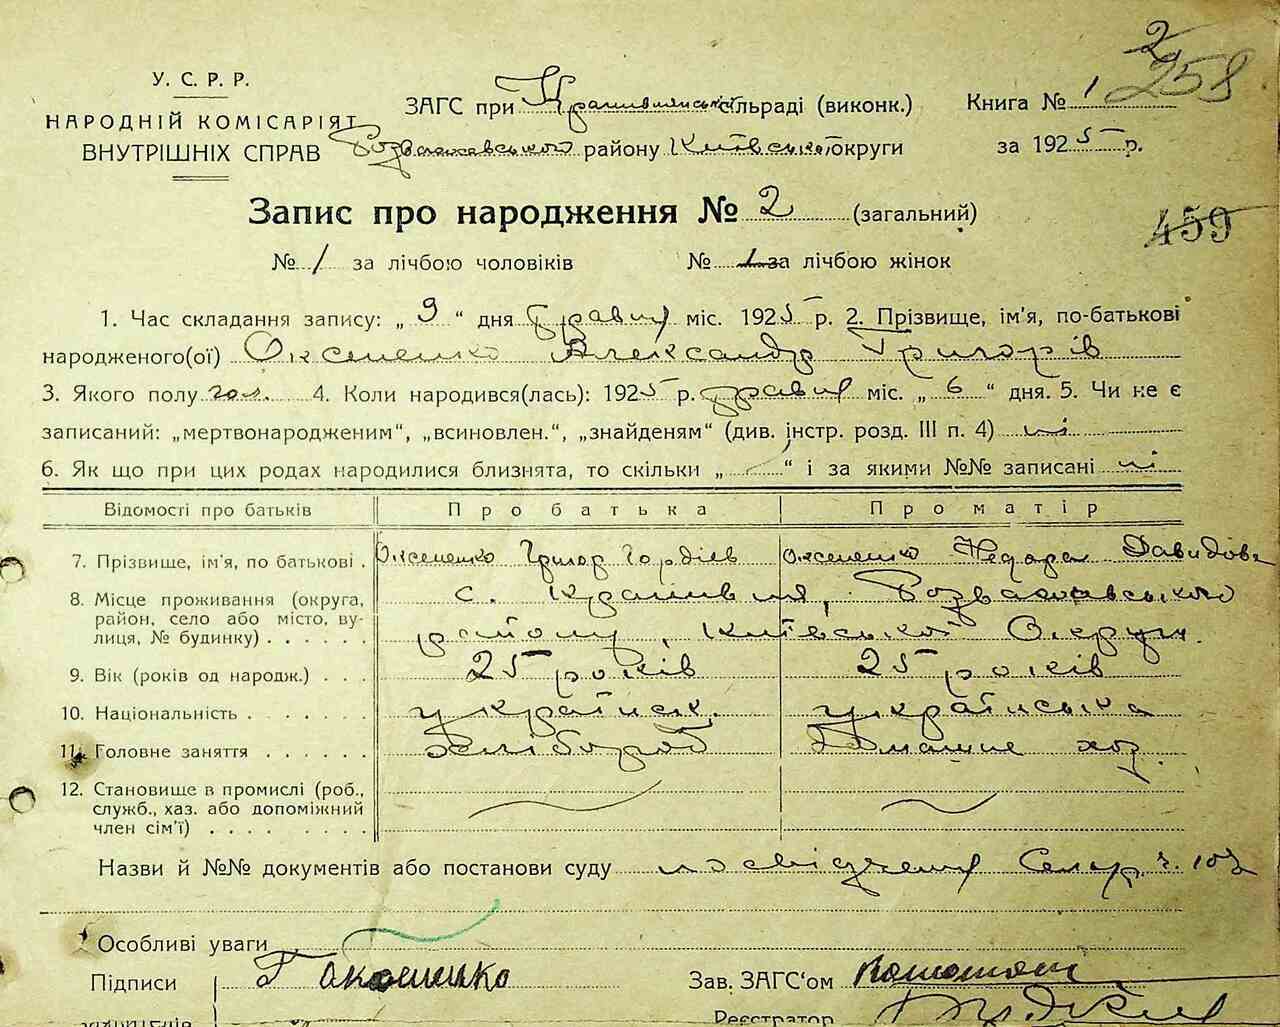 2
258
У. С. Р. Р.
НАРОДНІЙ КОМІСАРІЯТ
ВНУТРІШНІХ СПРАВ
ЗАГС при Крапивянській сільраді (виконк.)
Розважевського району Київської округи
Книга № 1
за 1925 р.
Запис про народження № 2 (загальний)
459
№ 1 за лічбою чоловіків № 1 за лічбою жінок
1. Час складання запису: „ 9 “ дня травня міс. 1925 р. 2. Прізвище, ім'я, по-батькові
народженого(ої) Оксененко Александр Григорів
3. Якого полу чол. 4. Коли народився(лась): 1925 р. травня міс. „ 6 “ дня. 5. Чи не є
записаний: „мертвонародженим“, „всиновлен.“, „знайденям“ (див. інстр. розд. III п. 4) ні
6. Як що при цих родах народилися близнята, то скільки „ “ і за якими №№ записані ні
Відомості про батьків Про батька Про матір
7. Прізвище, ім'я, по батькові . Оксененко Григор Гордіев Оксененко Федора Давидовна
8. Місце проживання (округа,
район, село або місто, ву-
лиця, № будинку) . . . . . .
с. Крапивня, Розважевського
району, Київської Округи.
9. Вік (років од народж.) . . . 25 років 25 років
10. Національність . . . . . . . українск. українська
11. Головне заняття . . . . . . Хлібороб Домашне хоз.
12. Становище в промислі (роб.,
служб., хаз. або допоміжний
член сім'ї) . . . . . . . .
Назви й №№ документів або постанови суду посвідчення Сельр. ч. 102
Особливі уваги
Підписи Г Окоененко
Зав. ЗАГС'ом
Реєстратор